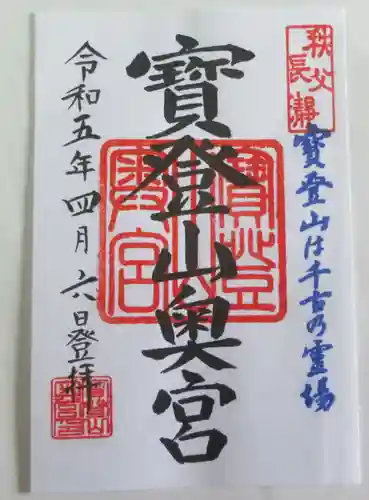 秩父
長瀞
寶登山は千古の霊場
寶登山奥宮
令和五年四月六日登拝